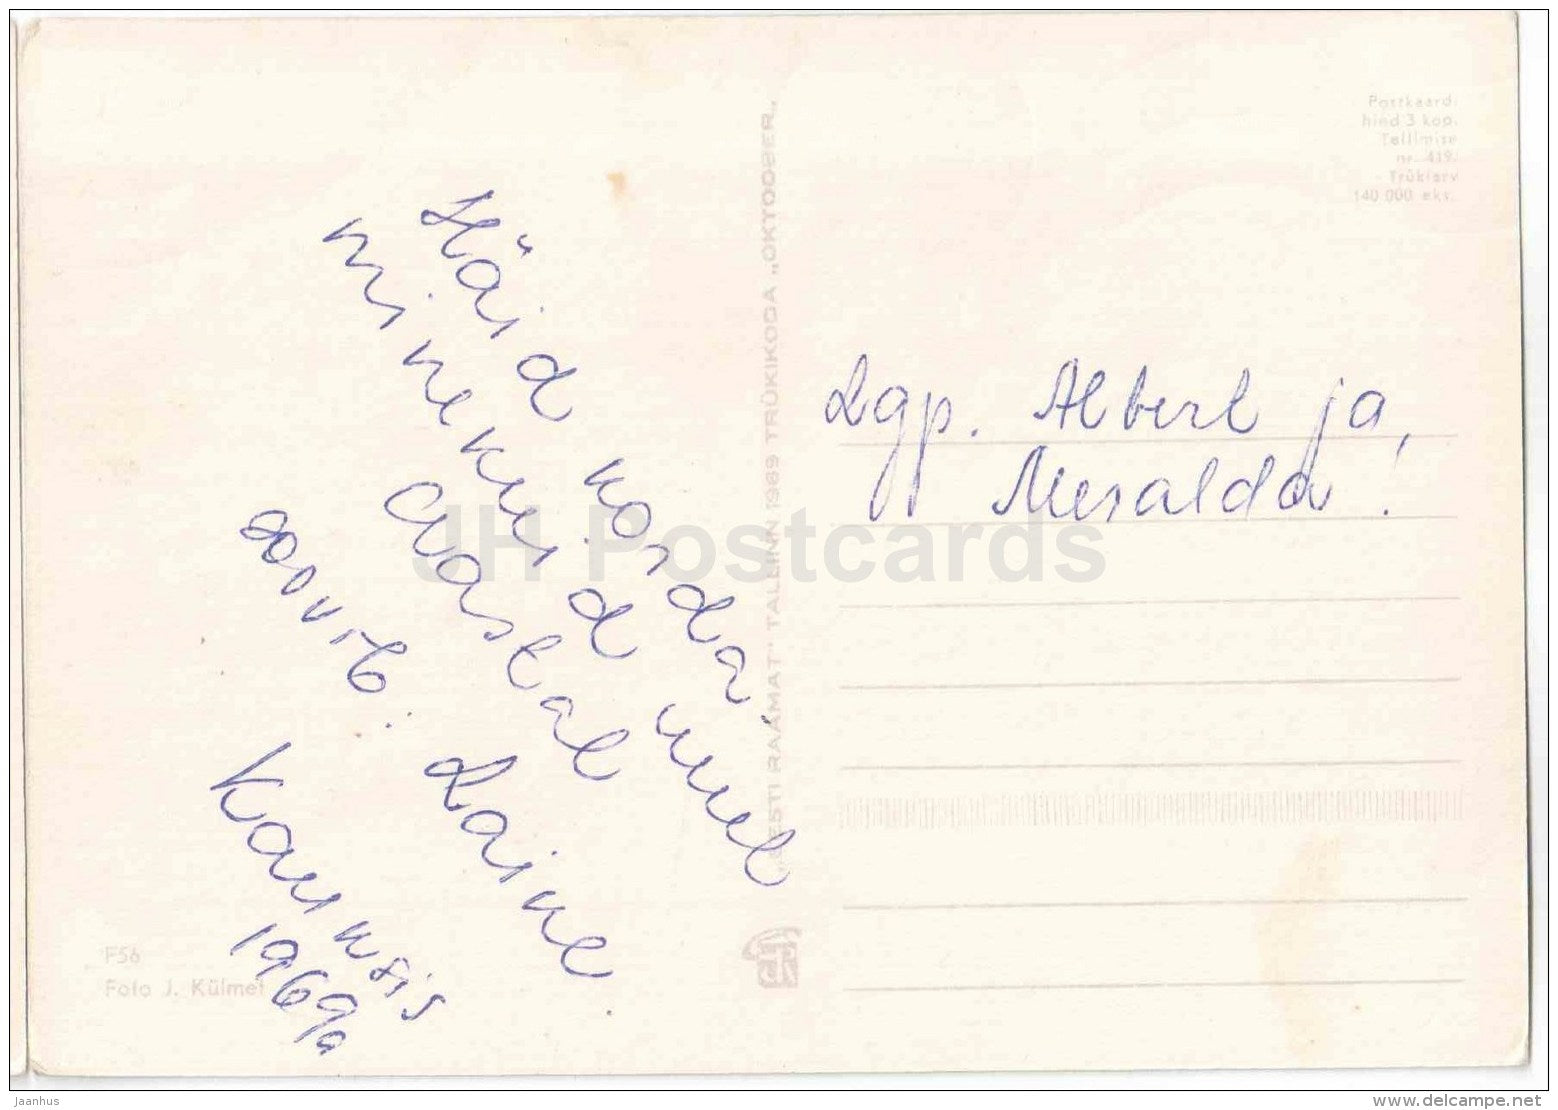 Postkaardi
hind 3 kop.
Tellimise
nr. 419.
Trükiarv
140 000 eks.
Häid kordaminekuid uuel
aastal
soovib: Laine.
1969a
Lgp. Albert ja,
Meralda!
„EESTI RAAMAT" TALLINN 1969 TRÜKIKODA „OKTOOBER"
F56
Foto J. Külmet
JH Postcards
Jaanhus
www.delcampe.net